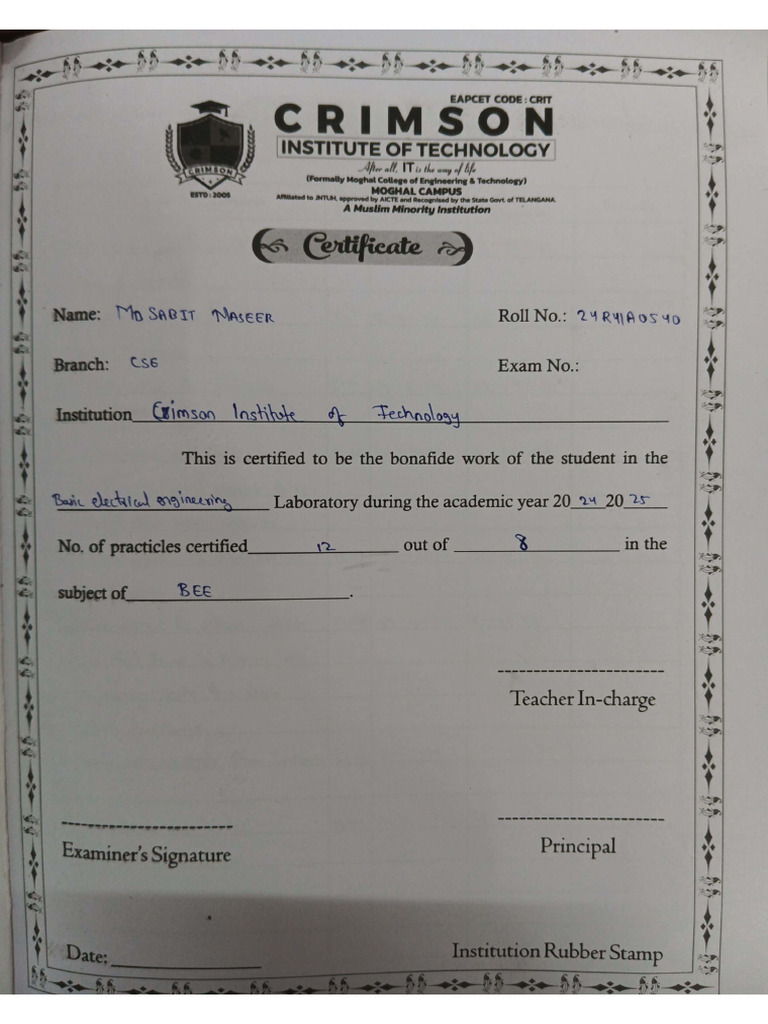 EAPCET CODE : CRIT
CRIMSON
INSTITUTE OF TECHNOLOGY
After all, IT is the way of life
(Formally Moghal College of Engineering & Technology)
MOGHAL CAMPUS
Affiliated to JNTUH, approved by AICTE and Recognised by the State Govt. of TELANGANA.
A Muslim Minority Institution
CRIMSON
ESTD : 2005
Certificate
Name: MD SABIT NASEER Roll No.: 24R41A0540
Branch: CSE Exam No.:
Institution Crimson Institute of Technology
This is certified to be the bonafide work of the student in the
Basic electrical engineering Laboratory during the academic year 20 24 20 25
No. of practicles certified 12 out of 8 in the
subject of BEE.
Teacher In-charge
Examiner's Signature Principal
Date: Institution Rubber Stamp